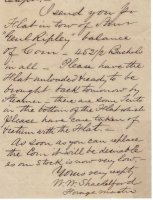 I send you for
Flat in tow of Str
Genl Ripley, balance
of Corn - 452/2 Bushels
in all - Please have the
Flat unloaded ready to be
brought back tomorrow by
Steamer - there are some
in the bottom of the Flat
please have care taken of
return with the Flat.
As soon as you can
the Corn it will be desirable
as our stock is now very low.
Yours very resptly
W. W. Shackelford
Forage Master